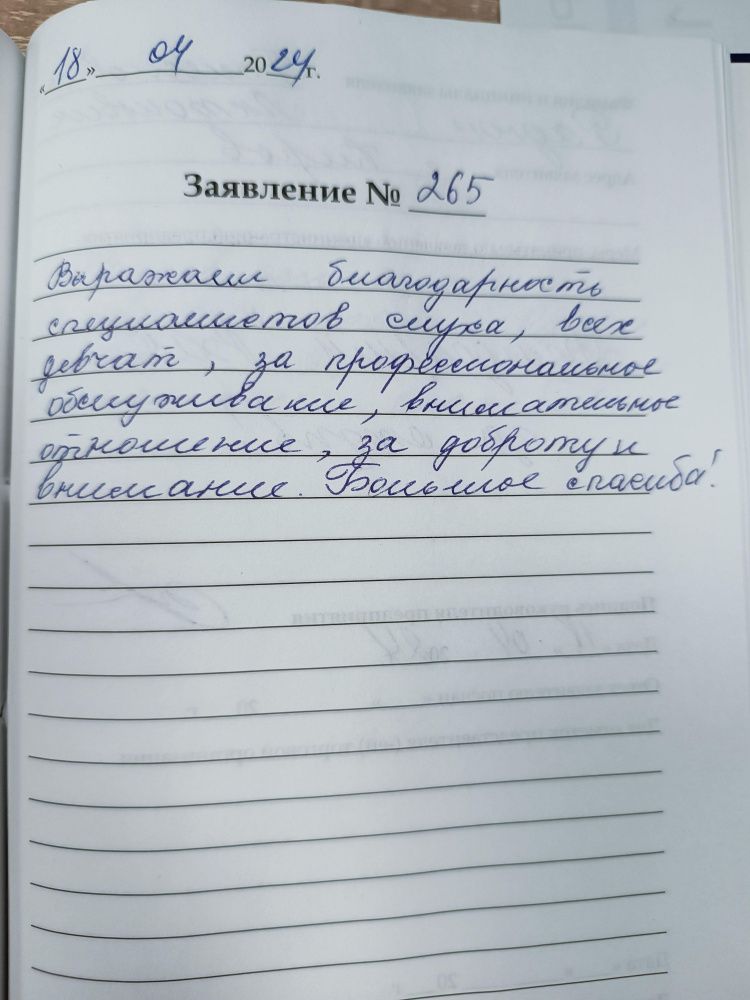 «18» 04 2024г.
Заявление № 265
Выражаем благодарность
специалистов слуха, всех
девчат, за профессиональное
обслуживание, внимательное
отношение, за доброту и
внимание. Большое спасиба!